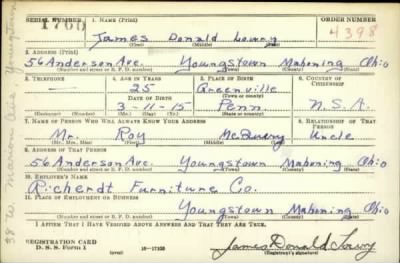 SERIAL NUMBER 1. NAME (Print) ORDER NUMBER
1700 James Donald Lowry 4398
(First) (Middle) (Last)
2. ADDRESS (Print)
56 Anderson Ave. Youngstown Mahoning Ohio
(Number and street or R. F. D. number) (Town) (County) (State)
3. TELEPHONE 4. AGE IN YEARS 5. PLACE OF BIRTH 6. COUNTRY OF CITIZENSHIP
— 25 Greenville
DATE OF BIRTH (Town or county)
3-11-15 Penn. U.S.A.
(Exchange) (No.) (Mo.) (Day) (Yr.) (State or country)
7. NAME OF PERSON WHO WILL ALWAYS KNOW YOUR ADDRESS 8. RELATIONSHIP OF THAT PERSON
Mr. Roy Uncle
(Mr., Mrs., Miss) (First) (Middle) (Last)
9. ADDRESS OF THAT PERSON
56 Anderson Ave. Youngstown Mahoning Ohio
(Number and street or R. F. D. number) (Town) (County) (State)
10. EMPLOYER'S NAME
Richerdt Furniture Co.
11. PLACE OF EMPLOYMENT OR BUSINESS
Youngstown Mahoning Ohio
(Number and street or R. F. D. number) (Town) (County) (State)
I AFFIRM THAT I HAVE VERIFIED ABOVE ANSWERS AND THAT THEY ARE TRUE.
REGISTRATION CARD
D. S. S. Form 1 (over) 16—17105 James Donald Lowry
(Registrant's signature)
38 W. Ave. Youngstown